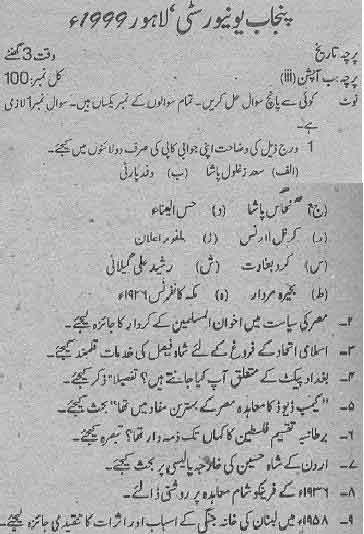 پنجاب یونیورسٹی، لاہور 1999ء
پرچہ تاریخ وقت 3 گھنٹے
پرچہ ب آپشن (iii) کل نمبر: 100
نوٹ کوئی سے پانچ سوال حل کریں۔ تمام سوالوں کے نمبر یکساں ہیں۔ سوال نمبر 1 لازمی
ہے۔
1 درج ذیل کی وضاحت اپنی جوابی کاپی کی صرف دو لائنوں میں کیجئے۔
(الف) سعد زغلول پاشا (ب) وفد پارٹی
(ج) نحاس پاشا (د) حسن البناء
(ر) کرنل لارنس (ز) بلفور اعلان
(س) کرد بغاوت (ش) رشید علی گیلانی
(ط) بحیرہ مردار (ہ) مکہ کانفرنس ۱۹۲۶ء
۲۔ مصر کی سیاست میں اخوان المسلمین کے کردار کا جائزہ لیجئے۔
۳۔ اسلامی اتحاد کے فروغ کے لئے شاہ فیصل کی خدمات قلمبند کیجئے۔
۴۔ بغداد پیکٹ کے متعلق آپ کیا جانتے ہیں؟ تفصیلاً ذکر کیجئے۔
۵۔ "کیمپ ڈیوڈ کا معاہدہ مصر کے بہترین مفاد میں تھا" بحث کیجئے۔
۶۔ برطانیہ تقسیم فلسطین کا کہاں تک ذمہ دار تھا؟ تبصرہ کیجئے۔
۷۔ اردن کے شاہ حسین کی خارجہ پالیسی پر بحث کیجئے۔
۸۔ ۱۹۳۶ء کے فرینکو شام معاہدہ پر روشنی ڈالئے۔
۹۔ ۱۹۵۸ء میں لبنان کی خانہ جنگی کے اسباب اور اثرات کا تنقیدی جائزہ لیجئے۔